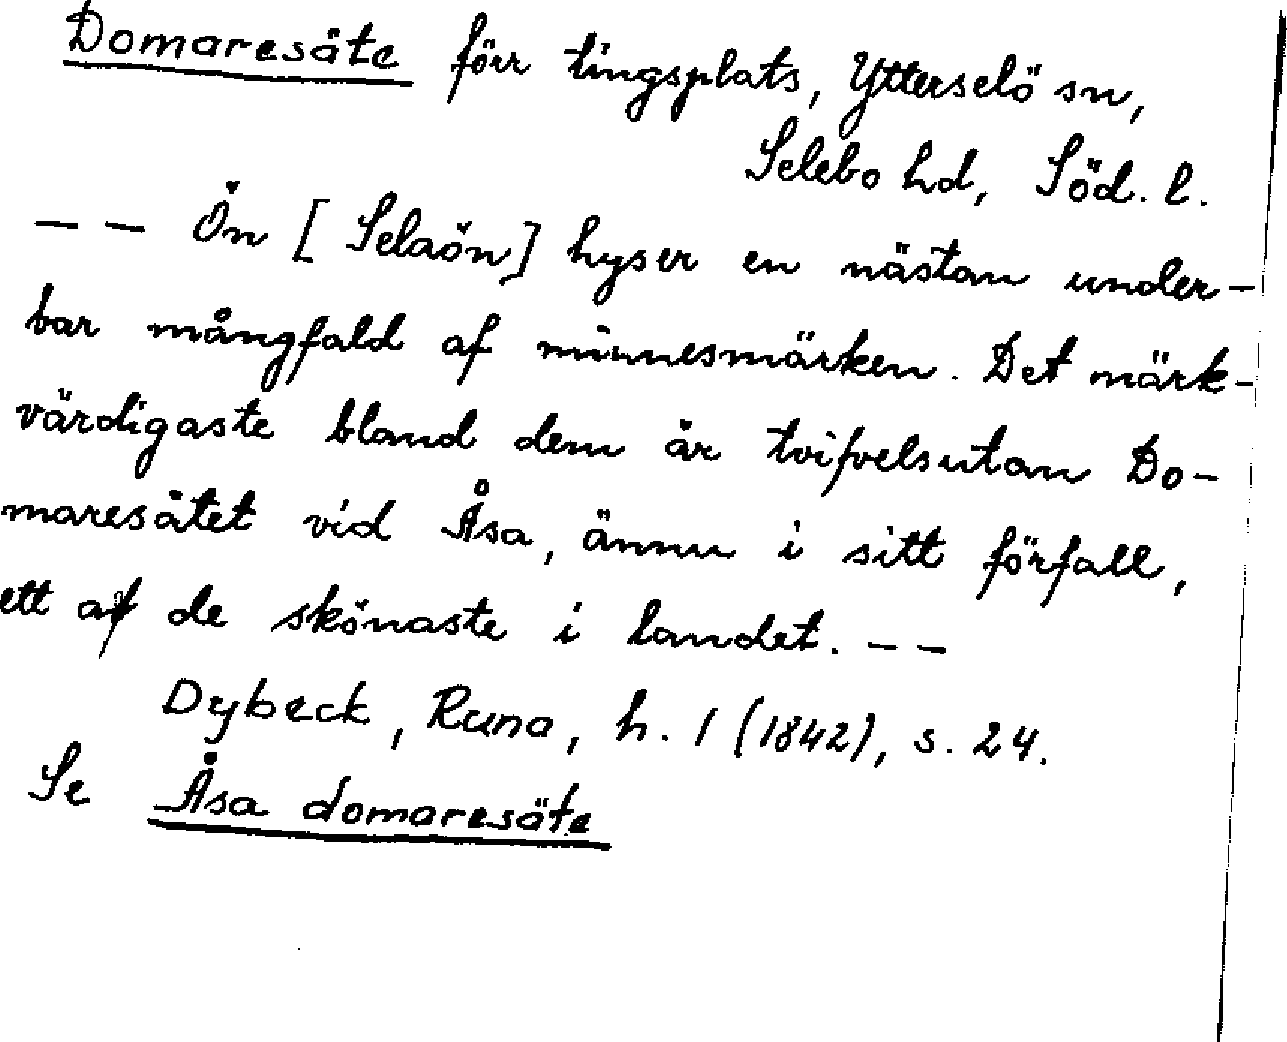 Domaresäte förr tingsplats, Ytterselö sn,
Selebo hd, Söd. l.
— — Ön [Selaön] hyser en nästan under-
bar mångfald af minnesmärken. Det märk-
värdigaste bland dem är tvifvelsutan Do-
maresätet vid Åsa, ännu i sitt förfall,
ett af de skönaste i landet. — —
Dybeck, Runa, h. 1 (1842), s. 24.
Se Åsa domaresäte